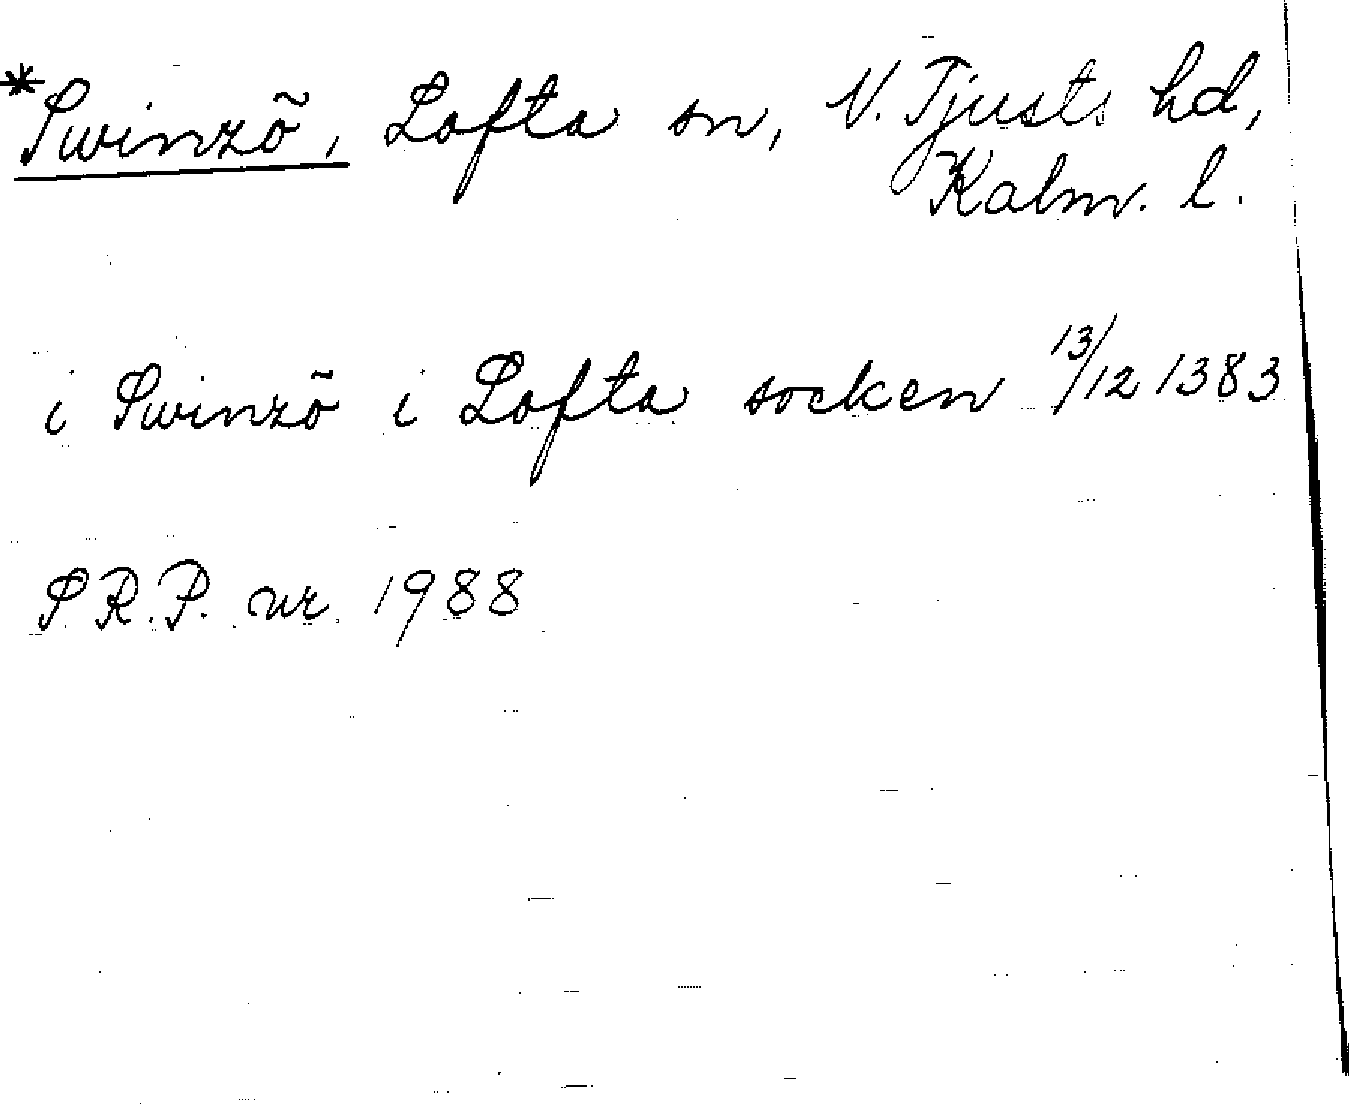 *Swinzö, Lofta sn, N. Tjusts hd,
Kalm. l.
i Swinzö i Lofta socken 13/12 1383
SR.P. nr. 1988